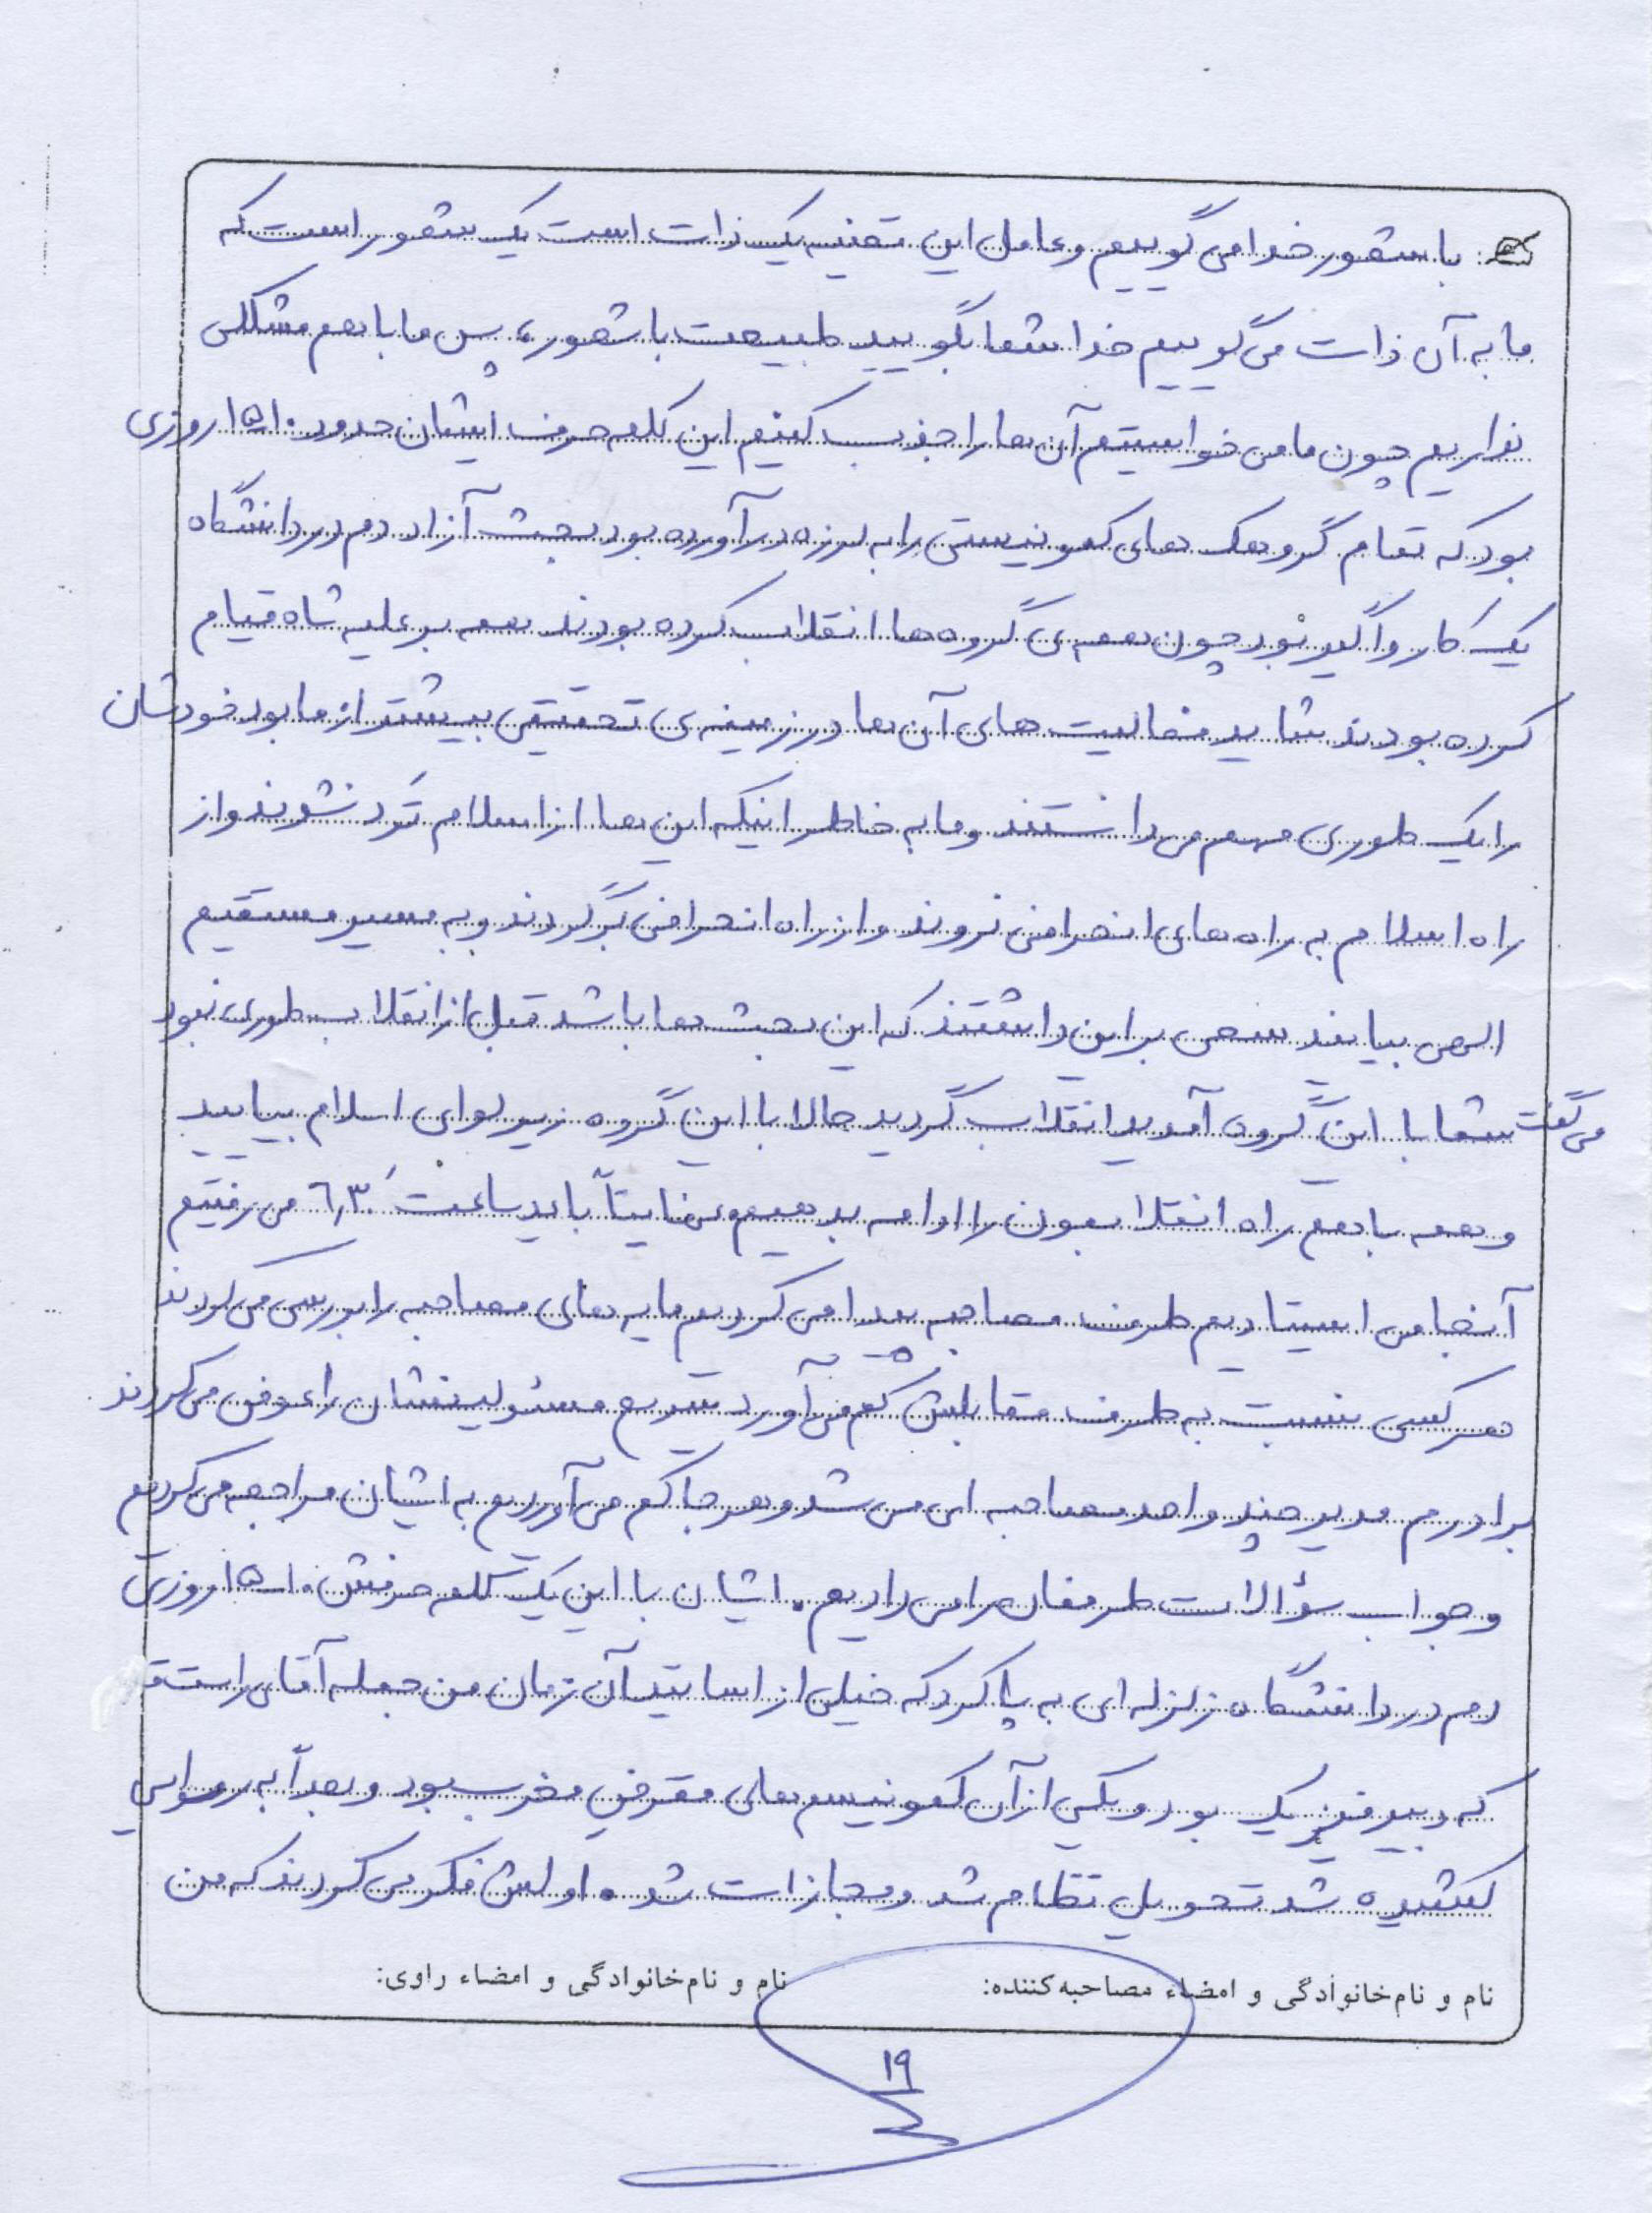 با شعور خدا می گوییم و عامل این قضیه یک ذات است یک شعور است که
ما به آن ذات می گوییم خدا شما بگویید طبیعت با شعور، پس ما با هم مشکلی
نداریم چون ما می خواستیم آن ها را جذب کنیم این کلمه حرف ایشان حدود ۱۰ـ۱۵ روزی
بود که تمام گروهک های کمونیستی را به لرزه در آورده بود بحث آزاد دم در دانشگاه
یک کار واگیر بود چون همه ی گروه ها انقلاب کرده بودند همه بر علیه شاه قیام
کرده بودند شاید فعالیت های آن ها در زمینه ی تحقیقی بیشتر از ما بود خودشان
را یک طوری مهم می دانستند و ما به خاطر اینکه این ها از اسلام ترد نشوند و از
راه اسلام به راه های انحرافی نروند و از راه انحرافی برگردند و به مسیر مستقیم
الهی بیایند سعی بر این داشتند که این بحث ها باشد قبل از انقلاب طوری نبود
می گفت شما با این گروه آمدید انقلاب کردید حالا با این گروه زیر لوای اسلام بیایید
و همه با هم راه انقلابمون را ادامه بدهیم نهایتاً باید ساعت ۶،۳۰ می رفتیم
آنجا می ایستادیم طرف مصاحبه پیدا می کردیم مایه های مصاحبه را بررسی می کردند
هر کسی نسبت به طرف مقابلش کم می آورد سریع مسئولینشان را عوض می کردند
برادرم مدیر چند واحد مصاحبه ای می شد و هر جا کم می آوردیم به ایشان مراجعه می کردیم
و جواب سؤالات طرفمان را می دادیم. ایشان با این یک کلمه حرفش ۱۰ـ۱۵ روزی
دم در دانشگاه زلزله ای به پا کرد که خیلی از اساتید آن زمان من جمله آقای راست
که دبیر فیزیک بود و یکی از آن کمونیسم های مخرب بود و بعداً به رسوایی
کشیده شد تحویل نظام شد و مجازات شد. اولش فکر می کردند که من
نام و نام خانوادگی و امضاء مصاحبه کننده: نام و نام خانوادگی و امضاء راوی:
۱۹